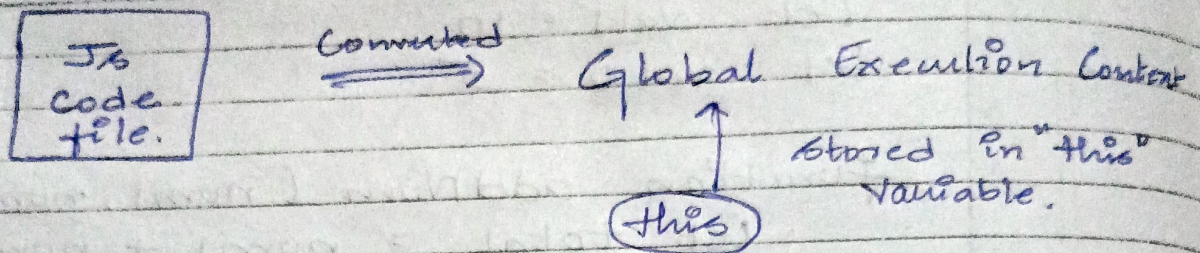 Js
code
file.
Connected
Global Execution Context
stored in "this"
variable.
this.